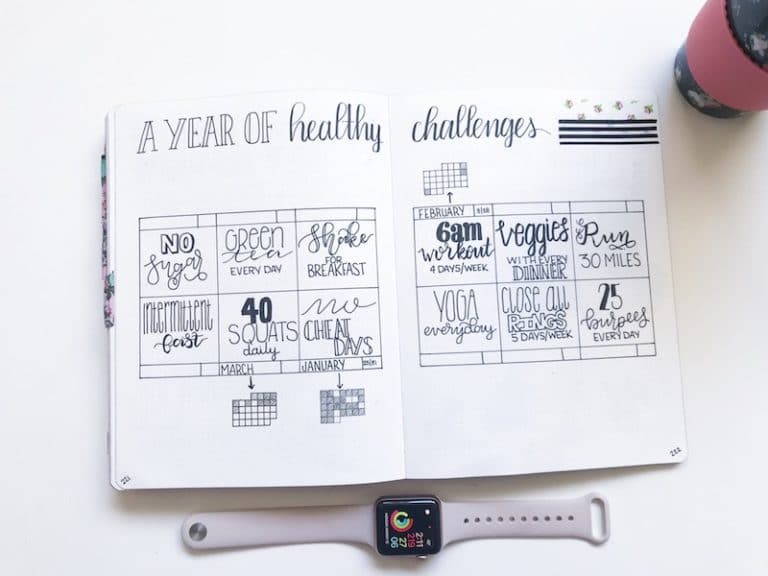 A YEAR OF healthy challenges
NO
sugar
GREEN
tea
EVERY DAY
Shake
FOR
BREAKFAST
intermittent
fast
40
SQUATS
daily
no
CHEAT
DAYS
MARCH
JANUARY
221
FEBRUARY
6am
workout
4 DAYS/WEEK
Veggies
WITH EVERY
DINNER
Run
30 MILES
YOGA
everyday
close all
RINGS
5 DAYS/WEEK
25
burpees
EVERY DAY
222
2:11
219
27
06